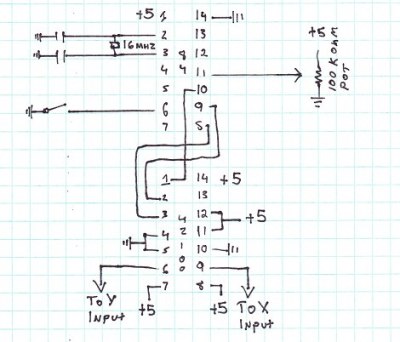 +5 1 14
+5
2 13
16 MHz
3 8 12
4 4 11
100 K ohm
POT
5 10
6 9
7 8
1 14 +5
2 13
3 4 12
+5
4 2 11
5 1 10
0
6 0 9
7 8
To Y
Input
+5
+5
To X
Input